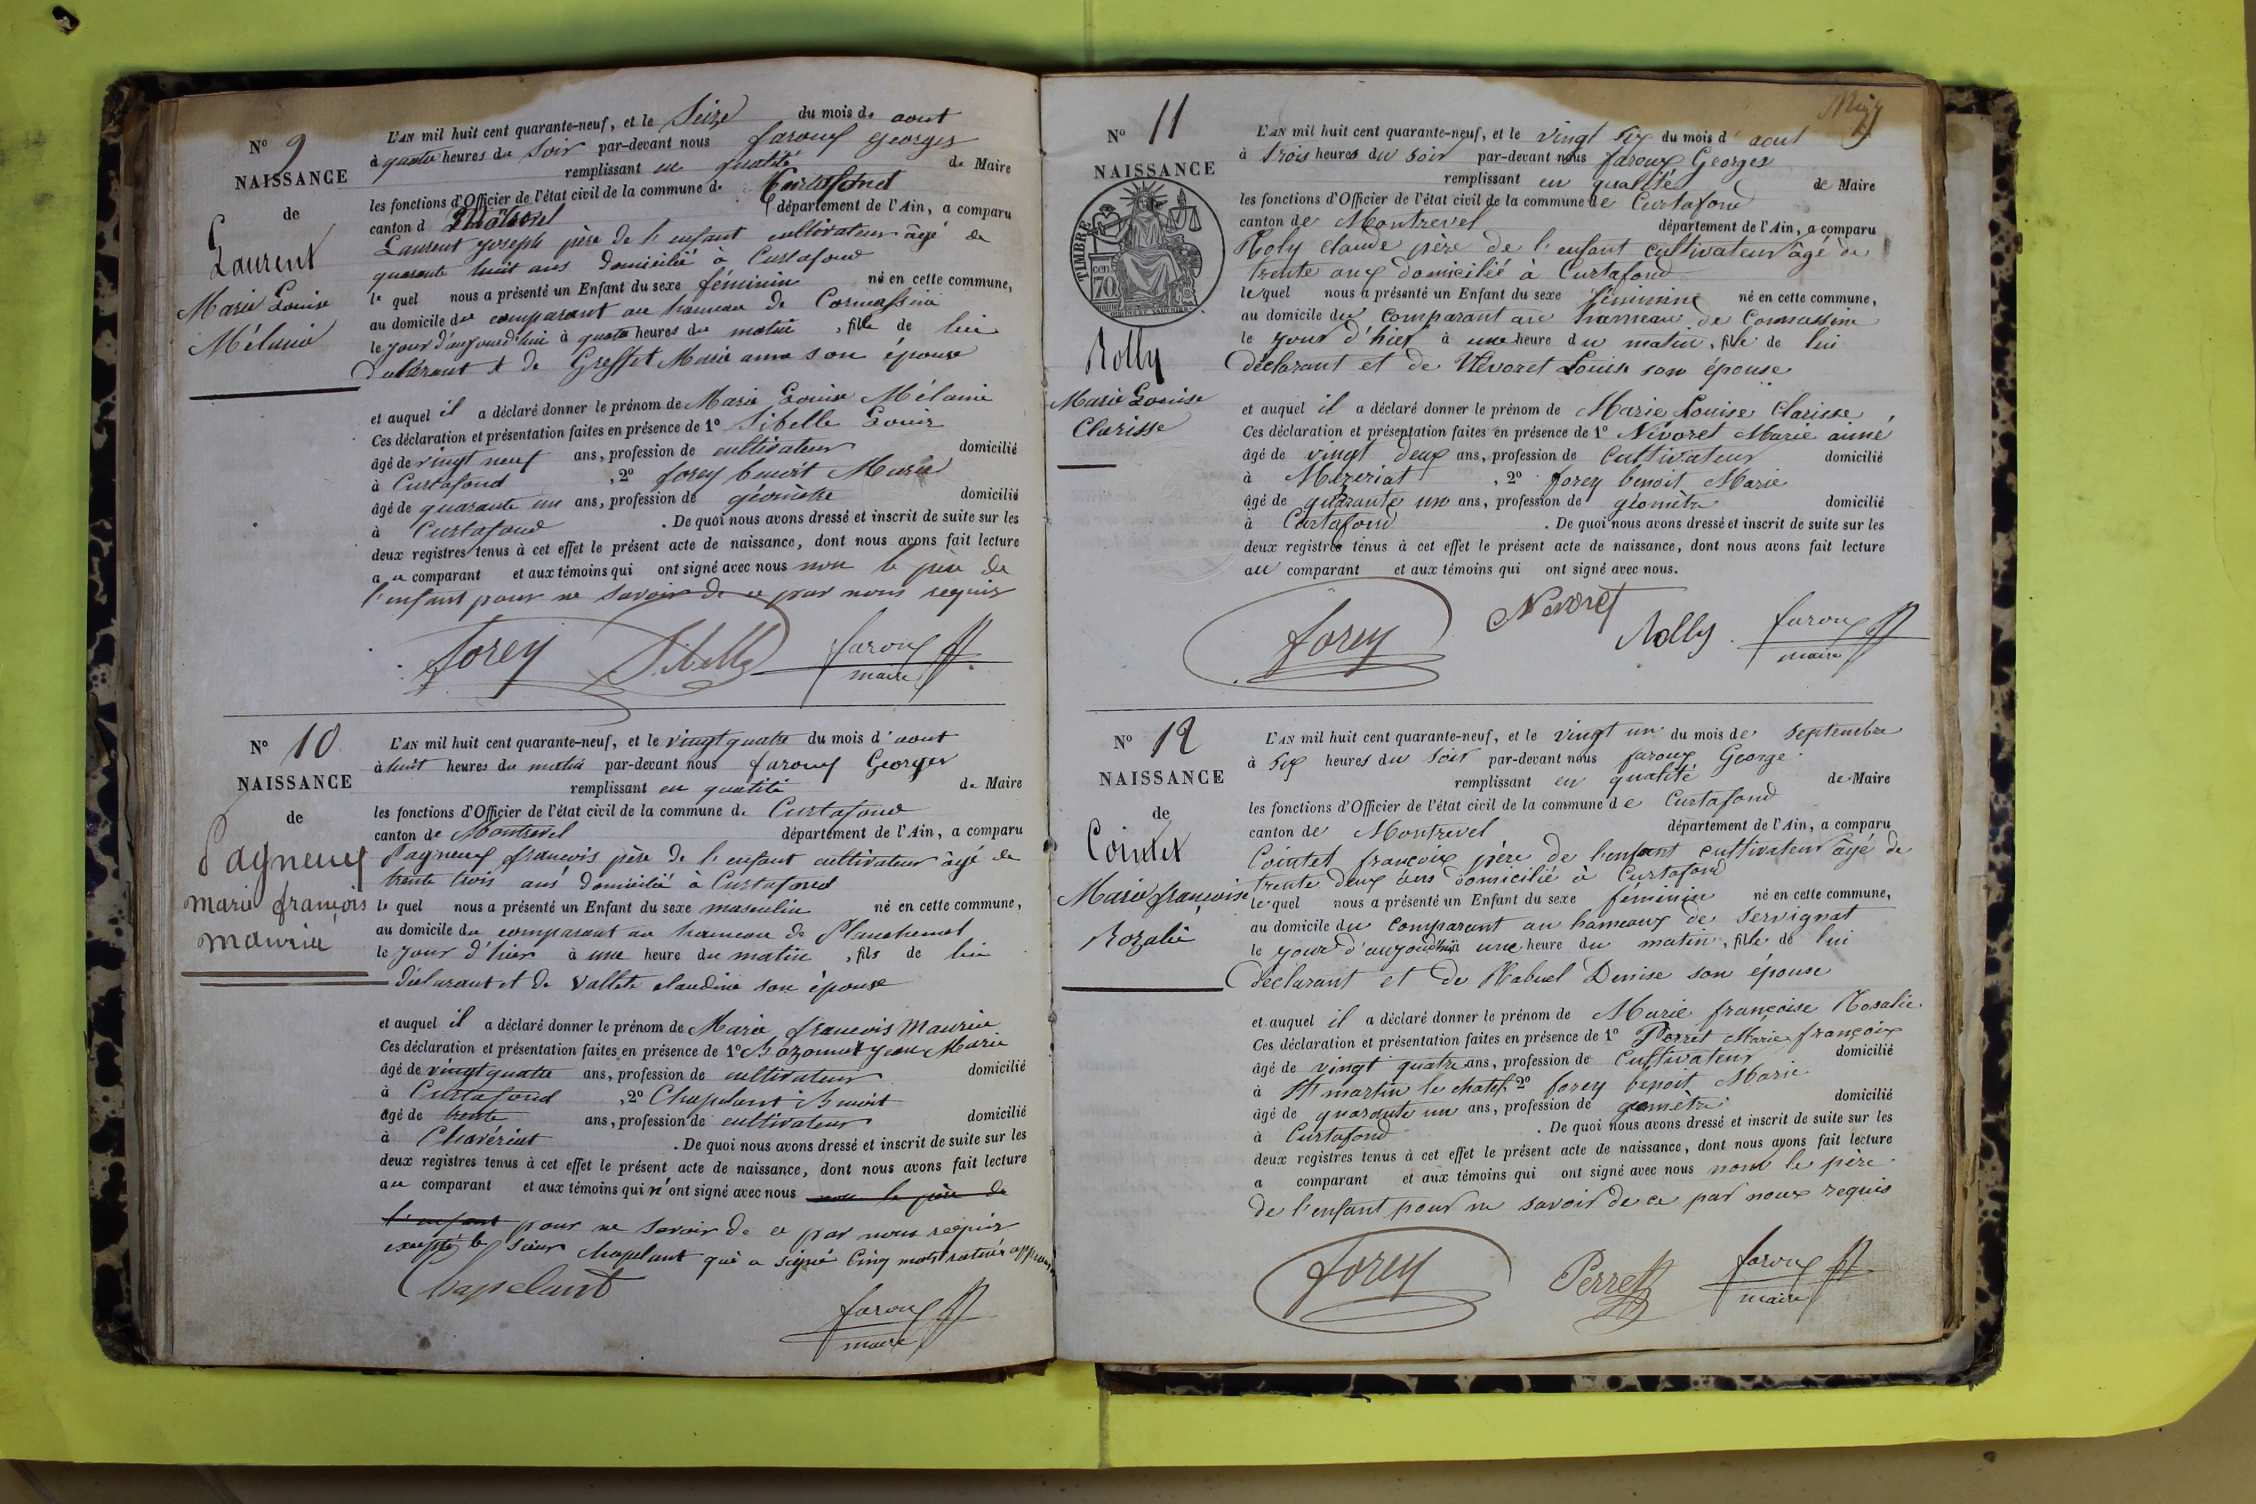 N° 9
NAISSANCE
de
Laurent
Marie Louise
Mélanie
L'AN mil huit cent quarante-neuf, et le Seize du mois de aout
à quatre heures du soir par-devant nous faroux Georges
remplissant en qualité de Maire
les fonctions d'Officier de l'état civil de la commune de Curtafond
canton d département de l'Ain, a comparu
Laurent Joseph père de l'enfant cultivateur âgé de
quarante huit ans domicilié à Curtafond
le quel nous a présenté un Enfant du sexe féminin né en cette commune,
au domicile du comparant au hameau de Cormassine
le jour d'aujourd'hui à quatre heures du matin, fille de lui
déclarant et de Greffet Marie anne son épouse
et auquel il a déclaré donner le prénom de Marie Louise Mélanie
Ces déclaration et présentation faites en présence de 1° Sibelle Louis
âgé de vingt neuf ans, profession de cultivateur domicilié
à Curtafond , 2° forey benoit Marie
âgé de quarante un ans, profession de géomètre domicilié
à Curtafond . De quoi nous avons dressé et inscrit de suite sur les
deux registres tenus à cet effet le présent acte de naissance, dont nous avons fait lecture
au comparant et aux témoins qui ont signé avec nous non le père de
l'enfant pour ne savoir de ce par nous requis
forey Sibelle faroux
maire
N° 10
NAISSANCE
de
Pagneux
marie françois
maurice
L'AN mil huit cent quarante-neuf, et le vingt quatre du mois d'aout
à huit heures du matin par-devant nous faroux Georges
remplissant en qualité de Maire
les fonctions d'Officier de l'état civil de la commune de Curtafond
canton de Montrevel département de l'Ain, a comparu
Pagneux françois père de l'enfant cultivateur âgé de
trente trois ans domicilié à Curtafond
le quel nous a présenté un Enfant du sexe masculin né en cette commune,
au domicile du comparant au hameau de
le jour d'hier à une heure du matin, fils de lui
déclarant et de Vallete claudine son épouse
et auquel il a déclaré donner le prénom de Marie françois Maurice
Ces déclaration et présentation faites en présence de 1° Bozonnet jean Marie
âgé de vingt quatre ans, profession de cultivateur domicilié
à Curtafond , 2° Chapelant Benoit
âgé de trente ans, profession de cultivateur domicilié
à Chavériat . De quoi nous avons dressé et inscrit de suite sur les
deux registres tenus à cet effet le présent acte de naissance, dont nous avons fait lecture
au comparant et aux témoins qui n'ont signé avec nous non le père de
l'enfant pour ne savoir de ce par nous requis
excepté le sieur chapelant qui a signé Cinq mots raturés approuvés
Chapelant
faroux
maire
N° 11
NAISSANCE
TIMBRE
70
Rolly
Marie Louise
Clarisse
L'AN mil huit cent quarante-neuf, et le vingt six du mois d'aout
à trois heures du soir par-devant nous faroux Georges
remplissant en qualité de Maire
les fonctions d'Officier de l'état civil de la commune de Curtafond
canton de Montrevel département de l'Ain, a comparu
Roly claude père de l'enfant cultivateur âgé de
trente ans domicilié à Curtafond
le quel nous a présenté un Enfant du sexe féminin né en cette commune,
au domicile du comparant au hameau de Cormassine
le jour d'hier à une heure du matin, fille de lui
déclarant et de Névoret Louise son épouse
et auquel il a déclaré donner le prénom de Marie Louise Clarisse
Ces déclaration et présentation faites en présence de 1° Névoret Marie aimé
âgé de vingt deux ans, profession de cultivateur domicilié
à Mézériat , 2° forey benoit Marie
âgé de quarante un ans, profession de géomètre domicilié
à Curtafond . De quoi nous avons dressé et inscrit de suite sur les
deux registres tenus à cet effet le présent acte de naissance, dont nous avons fait lecture
au comparant et aux témoins qui ont signé avec nous.
forey Nevoret Rolly faroux
maire
N° 12
NAISSANCE
de
Cointet
Marie françoise
Rozalie
L'AN mil huit cent quarante-neuf, et le vingt un du mois de septembre
à six heures du soir par-devant nous faroux George
remplissant en qualité de Maire
les fonctions d'Officier de l'état civil de la commune de Curtafond
canton de Montrevel département de l'Ain, a comparu
Cointet françois père de l'enfant cultivateur âgé de
trente deux ans domicilié à Curtafond
le quel nous a présenté un Enfant du sexe féminin né en cette commune,
au domicile du comparant au hameaux de Servignat
le jour d'aujourd'hui une heure du matin, fille de lui
déclarant et de Rabuel Denise son épouse
et auquel il a déclaré donner le prénom de Marie françoise Rosalie
Ces déclaration et présentation faites en présence de 1° Perret Marie françois
âgé de vingt quatre ans, profession de cultivateur domicilié
à St martin le chatel 2° forey benoit Marie
âgé de quarante un ans, profession de géomètre domicilié
à Curtafond . De quoi nous avons dressé et inscrit de suite sur les
deux registres tenus à cet effet le présent acte de naissance, dont nous avons fait lecture
a comparant et aux témoins qui ont signé avec nous non le père
de l'enfant pour ne savoir de ce par nous requis
forey Perret faroux
maire